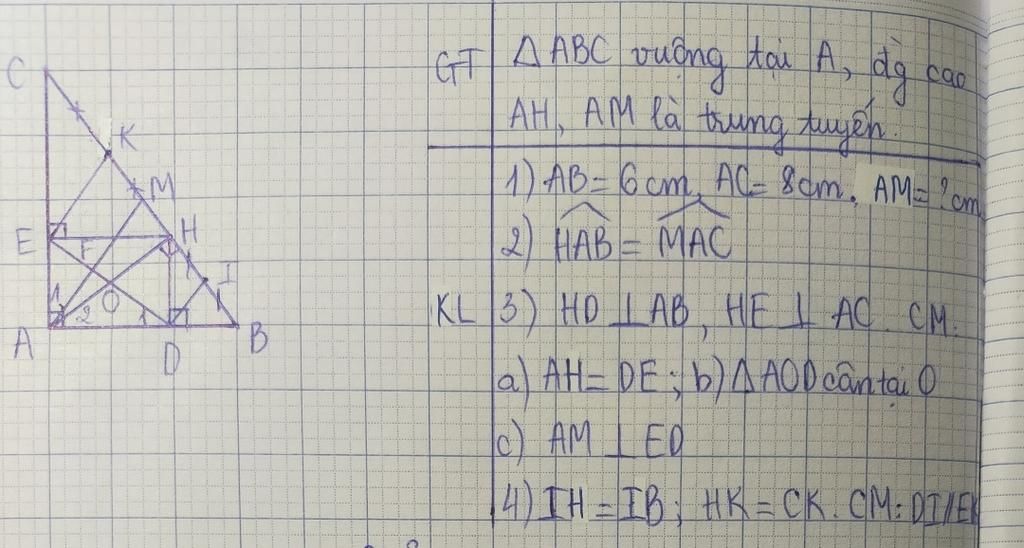 C
K
M
E
F
H
I
O
1
2
1
A
D
B
GT
ΔABC vuông tại A, đg cao
AH, AM là trung tuyến.
1) AB = 6cm, AC = 8cm. AM = ?cm
2) \widehat{HAB} = \widehat{MAC}
KL
3) HD ⊥ AB, HE ⊥ AC. CM:
a) AH = DE; b) ΔAOD cân tại O
c) AM ⊥ ED
4) IH = IB; HK = CK. CM: DI//EK